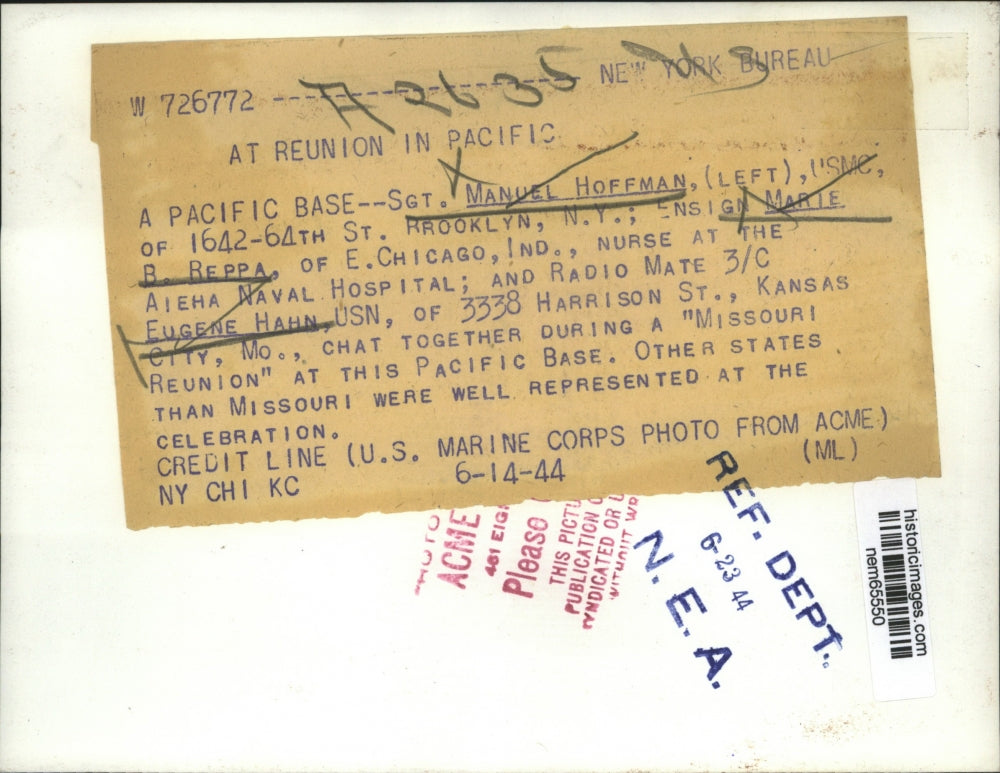 W 726772 ------ NEW YORK BUREAU
A 2635
AT REUNION IN PACIFIC
A PACIFIC BASE--SGT. MANUEL HOFFMAN, (LEFT), USMC,
OF 1642-64TH ST. RROOKLYN, N.Y.; ENSIGN MARIE
B. REPPA, OF E.CHICAGO, IND., NURSE AT THE
AIEHA NAVAL HOSPITAL; AND RADIO MATE 3/C
EUGENE HAHN, USN, OF 3338 HARRISON ST., KANSAS
CITY, MO., CHAT TOGETHER DURING A "MISSOURI
REUNION" AT THIS PACIFIC BASE. OTHER STATES
THAN MISSOURI WERE WELL REPRESENTED AT THE
CELEBRATION.
CREDIT LINE (U.S. MARINE CORPS PHOTO FROM ACME)
NY CHI KC 6-14-44 (ML)
ACME
461 EIG
Please
THIS PICTU
PUBLICATION
YNDICATED OR
WITHOUT WR
REF. DEPT.
6-23 44
N. E. A.
historicimages.com
nem65550